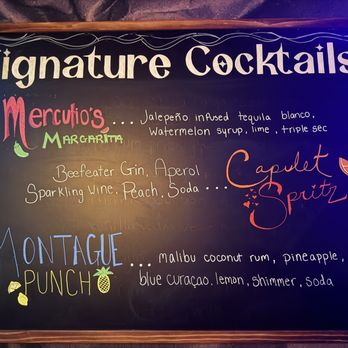 ignature Cocktails
Mercutio's ... Jalepeño infused tequila blanco,
MARGARITA Watermelon syrup, lime, triple sec
Beefeater Gin, Aperol
Sparkling Wine, Peach, Soda ... Capulet
Spritz
MONTAGUE ... malibu coconut rum, pineapple,
PUNCH blue curaçao, lemon, shimmer, soda